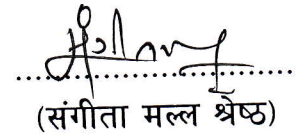 (संगीता मल्ल श्रेष्ठ)